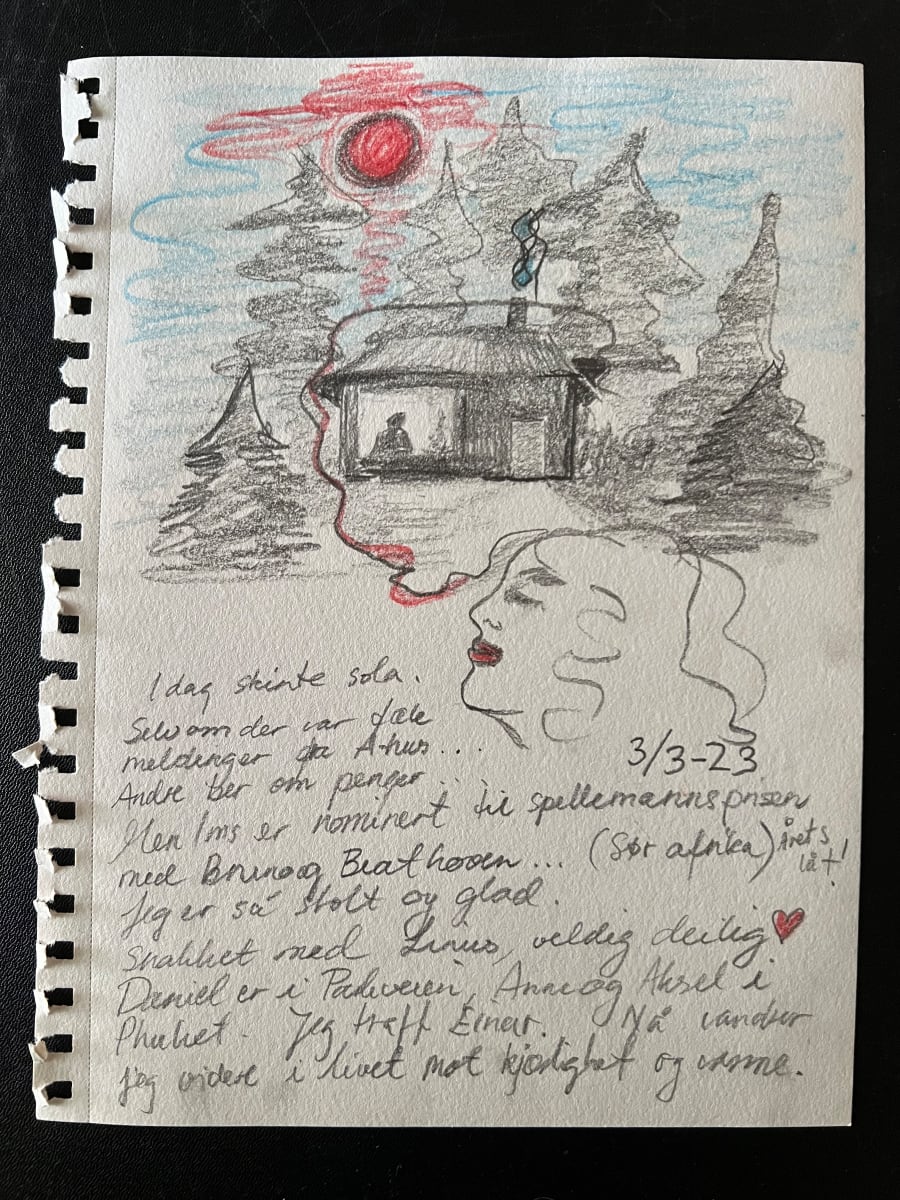 I dag skinte sola.
Selv om der var fæle
meldinger fra A-hus....
3/3-23
Andre ber om penger...
Men Ims er nominert til spellemannsprisen
med Bruno og Beathoven... (Sør afrika) årets låt!
Jeg er så stolt og glad.
Snakket med Linus, veldig deilig ♥
Daniel er i, Anne og Aksel i
Phuket. Jeg traff Einar. Nå vandrer
jeg videre i livet mot kjærlighet og varme.